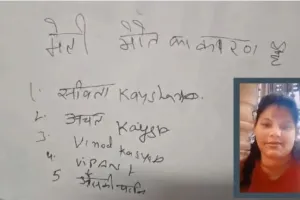 मेरी मौत का कारण
1. सविता Kayshap
2. अचल Kaysp
3. Vinod Kasyap
4. VIPAN
5